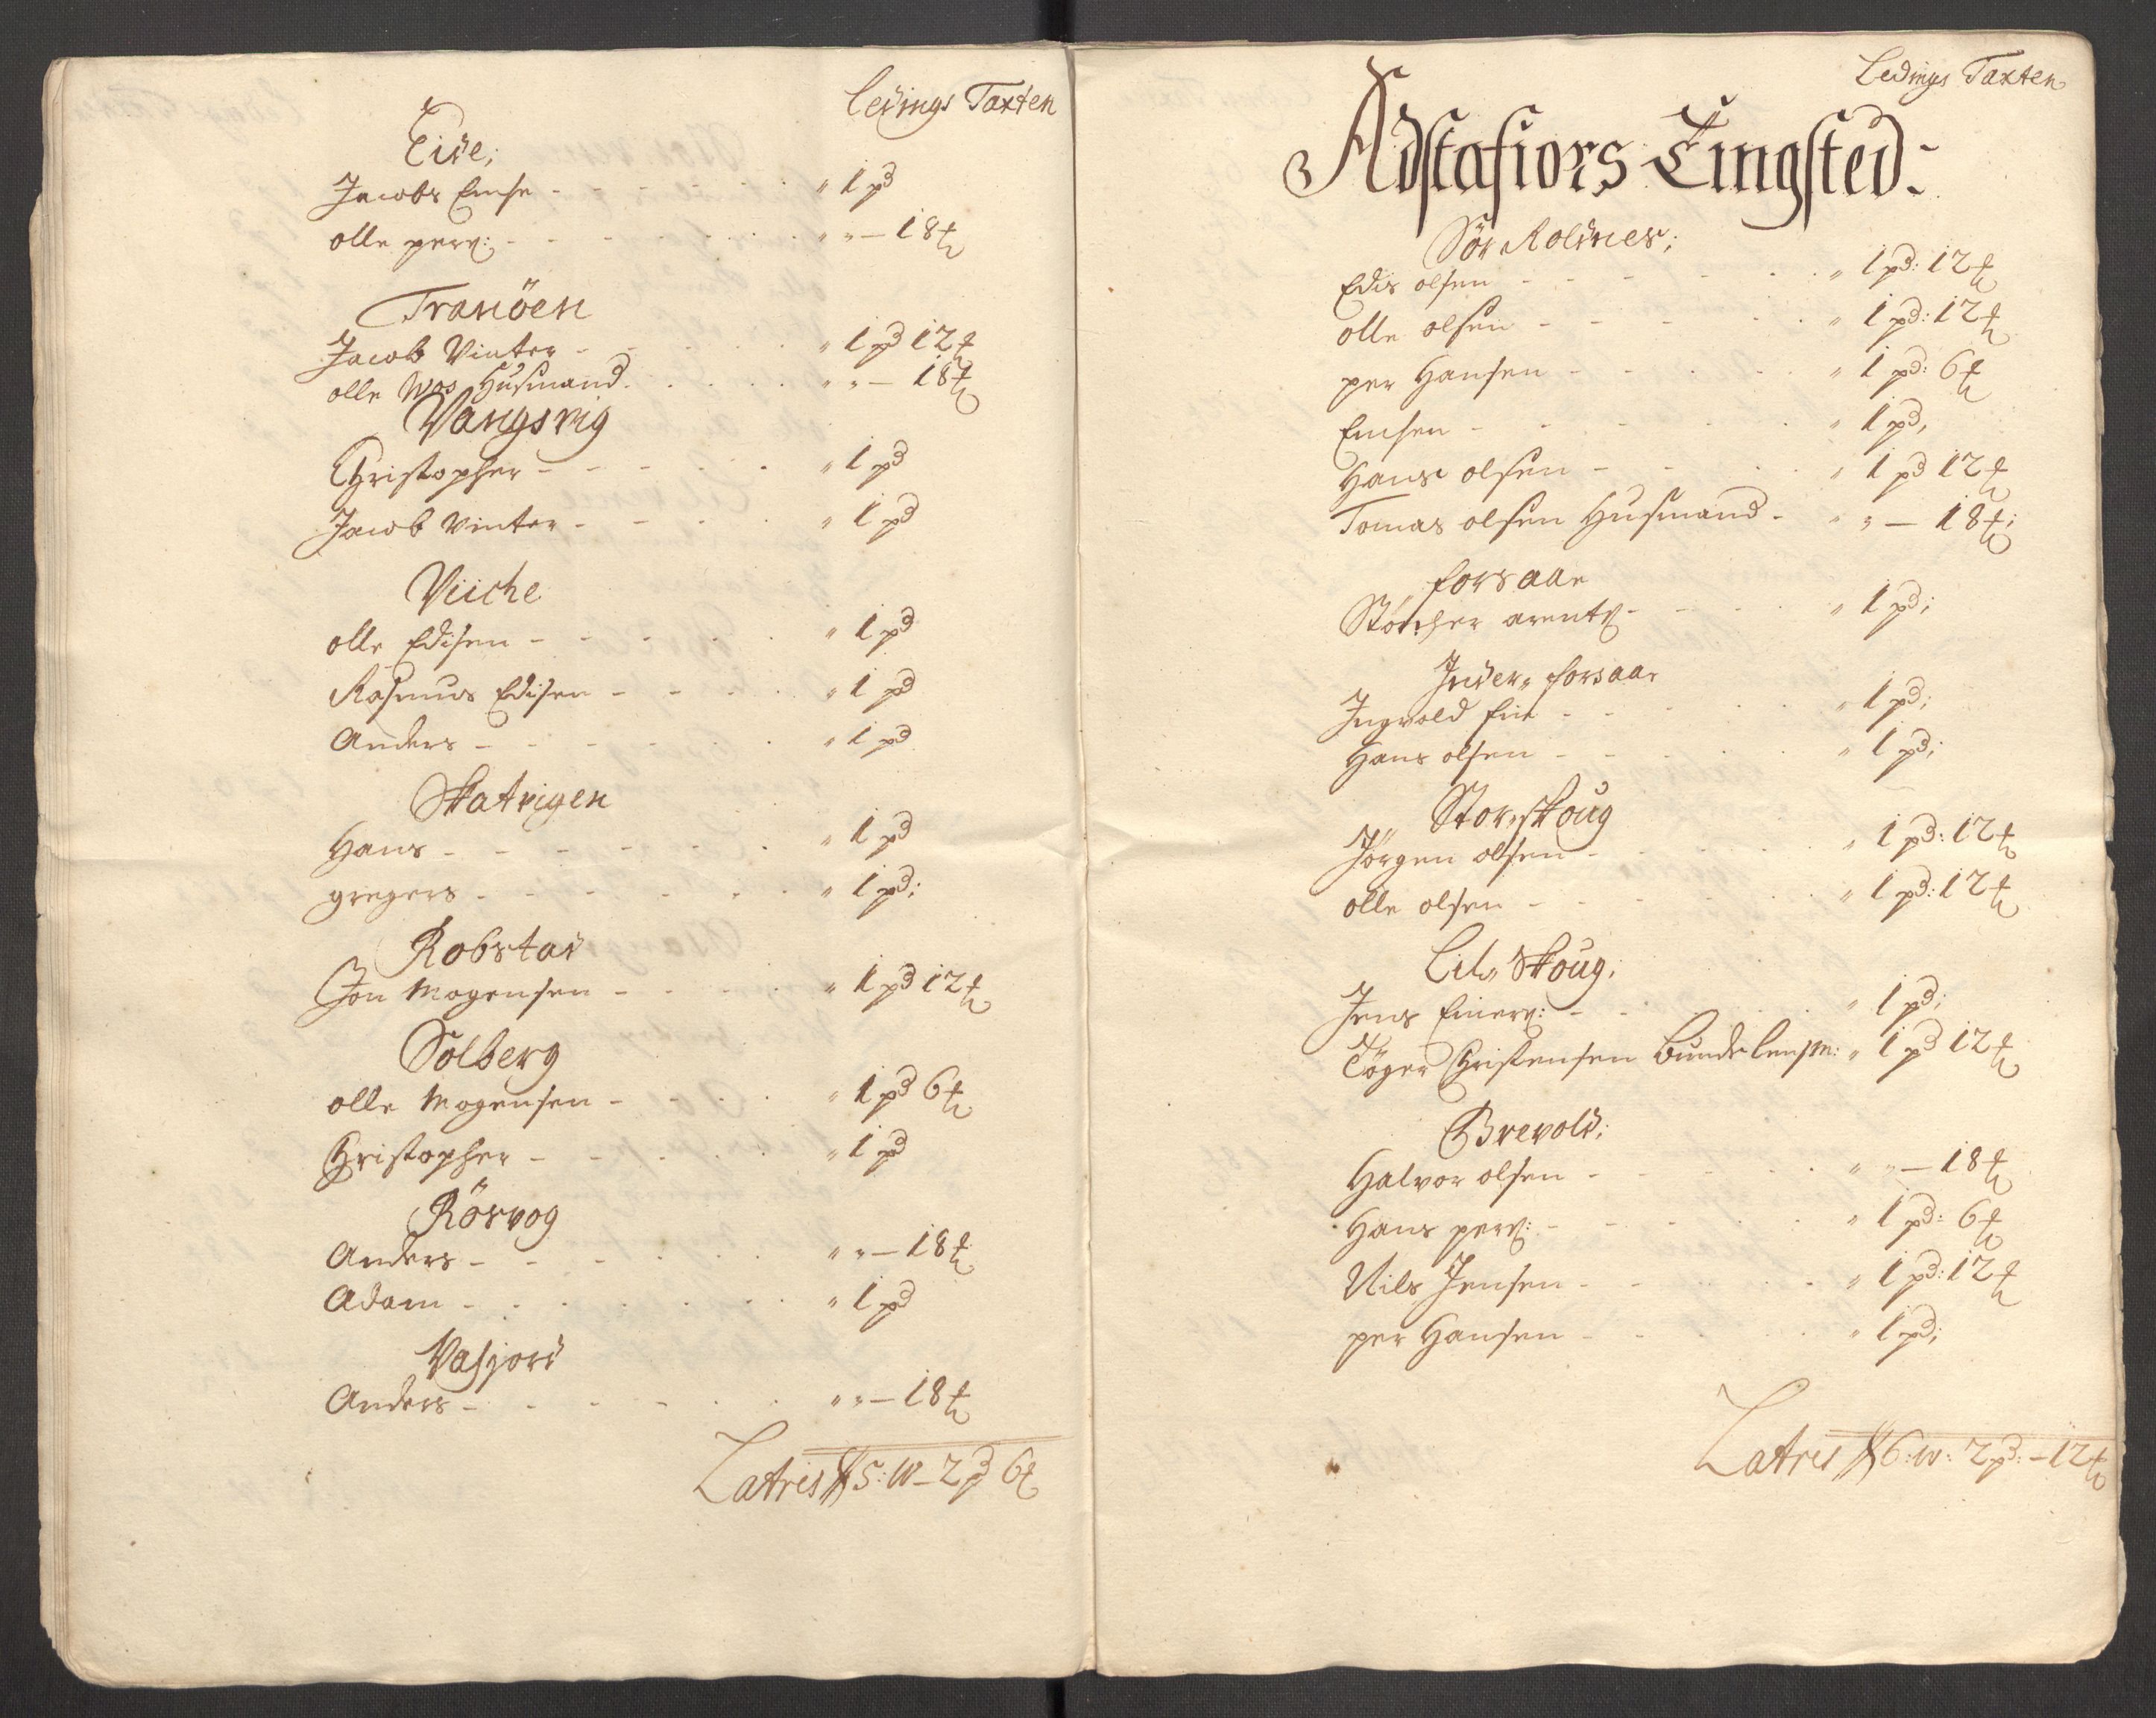 Ledings Taxten
Eide;
Jacobs Enche - - - - - - " 1 pd
olle pers: - - - - - - " " – 18 ℔
Tranöen
Jacob Vinter - - - - " 1 pd 12 ℔
olle Mos Husmand. . . . " " – 18 ℔
Vangsvig
Christopher - - - - - " 1 pd
Jacob Vinter - - - - " 1 pd
Viiche
olle Edisen - - - - - " 1 pd
Rasmus Edisen - - - - " 1 pd
Anders - - - - - - " 1 pd
Skatvigen
Hans - - - - - - " 1 pd
gregers - - - - - - " 1 pd;
Robstad
Jon Mogensen - - - - " 1 pd 12 ℔
Solberg
olle Mogensen - - - - " 1 pd 6 ℔
Christopher - - - - - " 1 pd
Rörvog
Anders - - - - - - " " – 18 ℔
Adam - - - - - - " 1 pd
Vasjord
Anders - - - - - - " " – 18 ℔
Latris 5: W – 2 pd 6 ℔
Ledings Taxten
Adstafiors Tingsted:
Sör Rolnes;
Edis olsen - - - - - " 1 pd: 12 ℔
olle olsen - - - - - " 1 pd: 12 ℔
per Hansen - - - - - " 1 pd: 6 ℔
Enchen - - - - - - " 1 pd,
Hans olsen - - - - " 1 pd 12 ℔
Tomas olsen Husmand - " " – 18 ℔;
forsaae
Störcher arentz - - - " 1 pd;
Inder„ forsaae
Ingvold Fin - - - - " 1 pd;
Hans olsen - - - - - " 1 pd;
Stor„skoug
Jörgen olsen - - - - " 1 pd: 12 ℔
olle olsen - - - - - " 1 pd: 12 ℔
Lil„ Skoug;
Jens Einers: - - - - " 1 pd;
Töger Christensen Bunde Lensm: " 1 pd 12 ℔
Brevold;
Halvor olsen - - - - " " – 18 ℔
Hans pers: - - - - - " 1 pd: 6 ℔
Nils Jensen - - - - - " 1 pd: 12 ℔
per Hansen - - - - - " 1 pd;
Latris 6: W: 2 pd: – 12 ℔